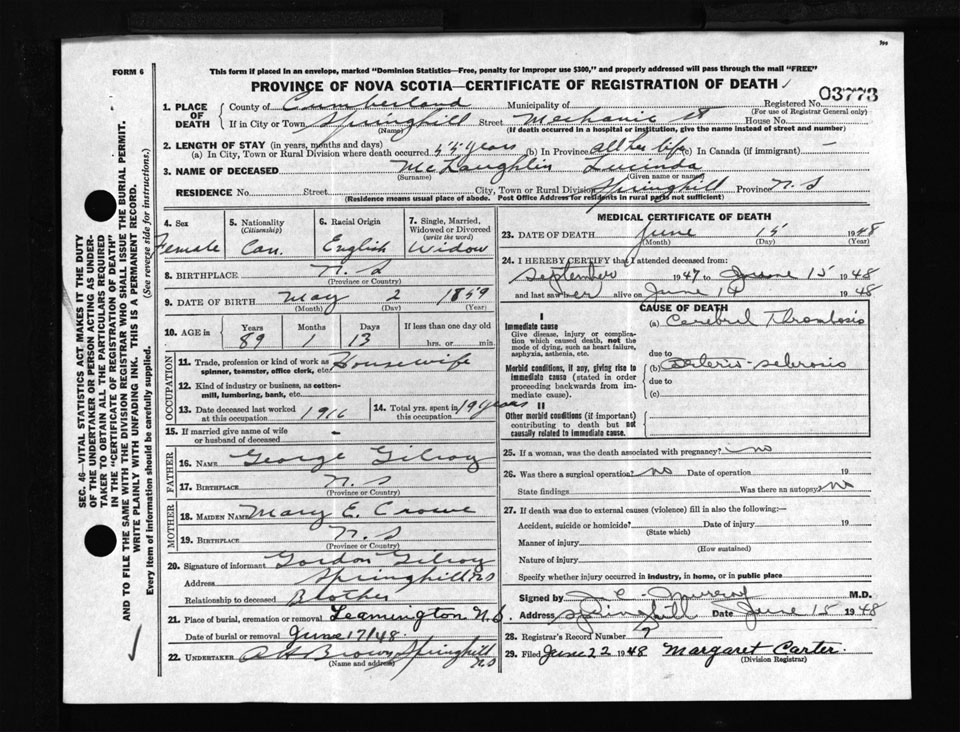 FORM 6
This form if placed in an envelope, marked "Dominion Statistics—Free, penalty for improper use $300," and properly addressed will pass through the mail "FREE"
PROVINCE OF NOVA SCOTIA—CERTIFICATE OF REGISTRATION OF DEATH
03773
1. PLACE OF DEATH
County of Cumberland Municipality of Registered No.
(For use of Registrar General only)
If in City or Town Springhill Street Mechanic St House No.
(Name) (If death occurred in a hospital or institution, give the name instead of street and number)
2. LENGTH OF STAY (in years, months and days)
(a) In City, Town or Rural Division where death occurred 55 years (b) In Province all her life (c) In Canada (if immigrant) —
3. NAME OF DECEASED McLaughlin Lucinda
(Surname) (Given name or names)
RESIDENCE No. Street City, Town or Rural Division Springhill Province N.S
(Residence means usual place of abode. Post Office Address for residents in rural parts not sufficient)
4. Sex
Female
5. Nationality
(Citizenship)
Can.
6. Racial Origin
English
7. Single, Married, Widowed or Divorced
(write the word)
Widow
8. BIRTHPLACE N.S
(Province or Country)
9. DATE OF BIRTH May 2 1859
(Month) (Day) (Year)
10. AGE in
Years Months Days If less than one day old
89 1 13 hrs. or min.
OCCUPATION
11. Trade, profession or kind of work as spinner, teamster, office clerk, etc. Housewife
12. Kind of industry or business, as cotton-mill, lumbering, bank, etc.
13. Date deceased last worked at this occupation 1916
14. Total yrs. spent in this occupation 19 years
15. If married give name of wife or husband of deceased —
FATHER
16. NAME George Gilroy
17. BIRTHPLACE N.S
(Province or Country)
MOTHER
18. MAIDEN NAME Mary E. Crowe
19. BIRTHPLACE N.S
(Province or Country)
20. Signature of informant Gordon Gilroy
Address Springhill N.S
Relationship to deceased Brother
21. Place of burial, cremation or removal Leamington N.S
Date of burial or removal June 17/48.
22. UNDERTAKER A H Brown, Springhill N.S
(Name and address)
MEDICAL CERTIFICATE OF DEATH
23. DATE OF DEATH June 15 1948
(Month) (Day) (Year)
24. I HEREBY CERTIFY that I attended deceased from:
September 1947 to June 15 1948
and last saw her alive on June 14 1948
CAUSE OF DEATH
I
Immediate cause
Give disease, injury or complication which caused death, not the mode of dying, such as heart failure, asphyxia, asthenia, etc.
(a) Cerebral Thrombosis
due to
Morbid conditions, if any, giving rise to immediate cause (stated in order proceeding backwards from immediate cause).
(b) Arterio-sclerosis
due to
(c)
II
Other morbid conditions (if important) contributing to death but not causally related to immediate cause.
25. If a woman, was the death associated with pregnancy? no
26. Was there a surgical operation? no Date of operation 19
State findings Was there an autopsy? no
27. If death was due to external causes (violence) fill in also the following:—
Accident, suicide or homicide? Date of injury 19
(State which)
Manner of injury
(How sustained)
Nature of injury
Specify whether injury occurred in industry, in home, or in public place
Signed by Murray M.D.
Address Springhill Date June 15 1948
28. Registrar's Record Number
29. Filed June 22 1948 Margaret Carter.
(Division Registrar)
SEC. 46—VITAL STATISTICS ACT MAKES IT THE DUTY
OF THE UNDERTAKER OR PERSON ACTING AS UNDER-
TAKER TO OBTAIN ALL THE PARTICULARS REQUIRED
IN THE "CERTIFICATE OF REGISTRATION OF DEATH"
AND TO FILE THE SAME WITH THE DIVISION REGISTRAR WHO SHALL ISSUE THE BURIAL PERMIT.
WRITE PLAINLY WITH UNFADING INK. THIS IS A PERMANENT RECORD.
Every item of information should be carefully supplied. (See reverse side for instructions.)